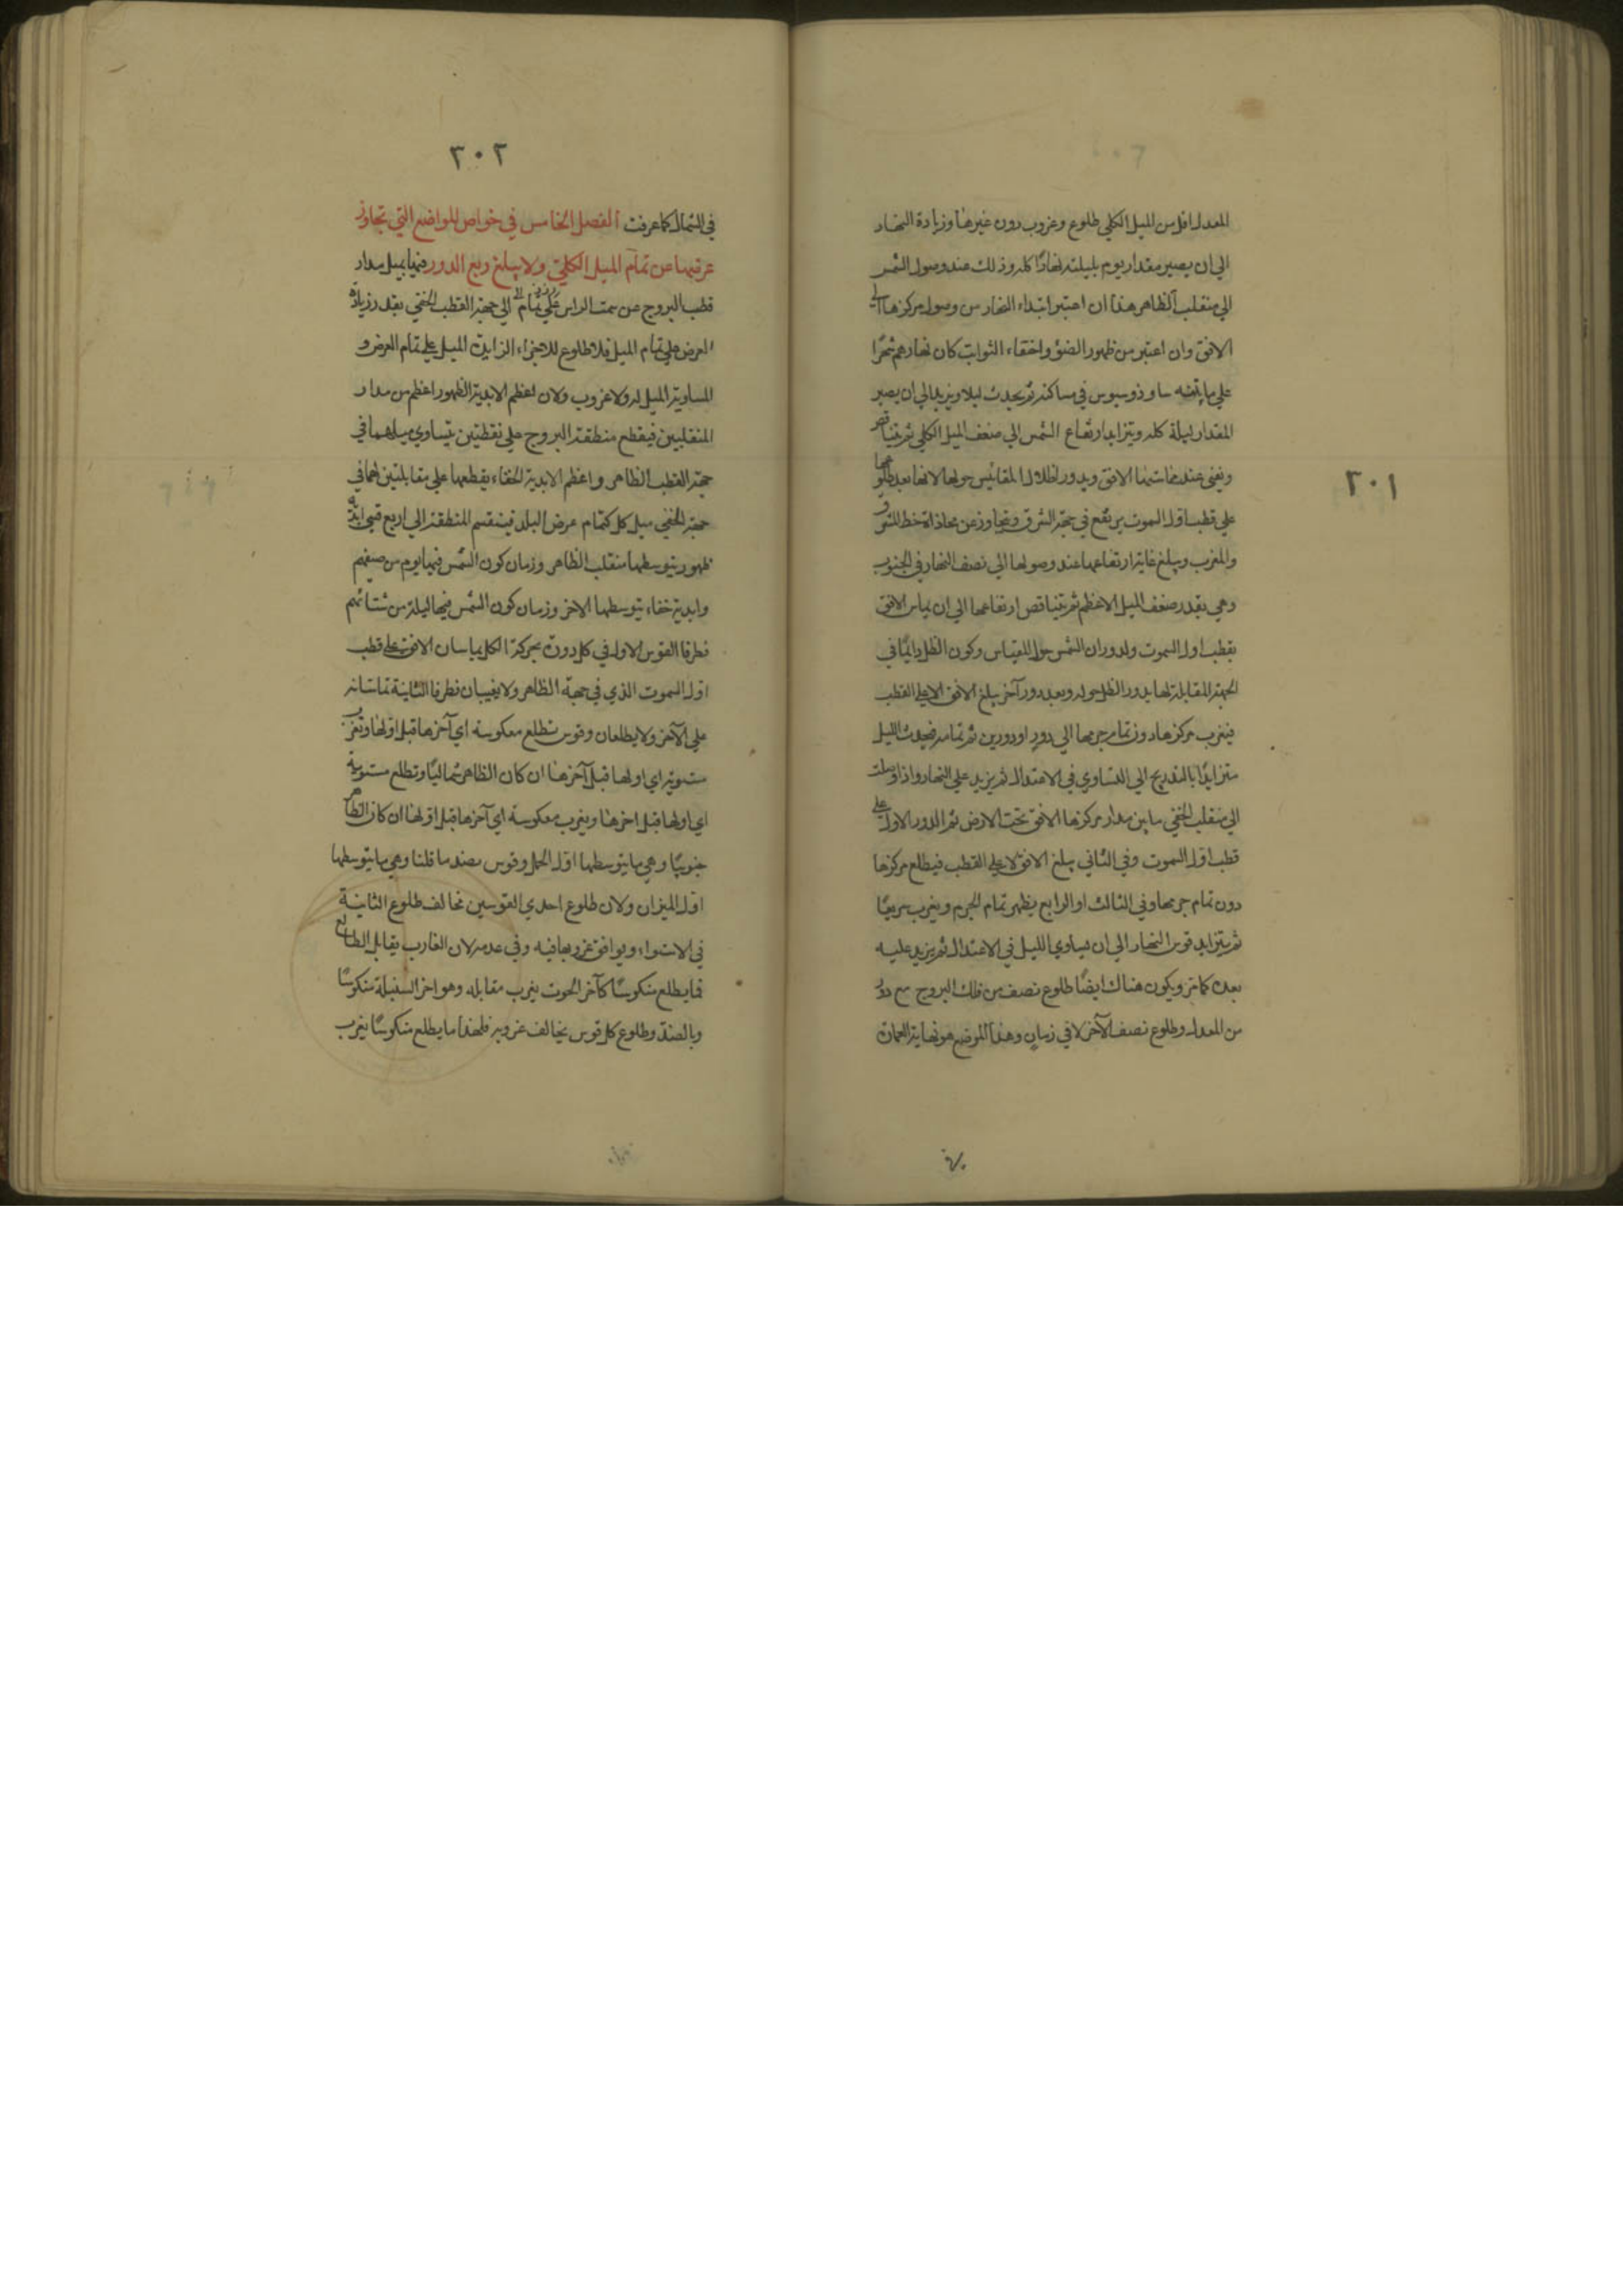 المعدل اقل من الميل الكلي طلوع وغروب دون غيرها وزيادة النهار
الي ان يصير مقدار يوم بليلته نهارًا كله وذلك عند وصول الشمس
الي منقلب الظاهر هذا ان اعتبر ابتداء النهار من وصول مركزها الي
الافق وان اعتبر من ظهور الضوء واختفاء الثوابت كان نهارهم شهرًا
علي ما بينه ساوذوسيوس في مساكنه ثم يحدث ليل ويزيد الي ان يصير
المقدار ليلة كله ويتزايد ارتفاع الشمس الي ضعف الميل الكلي ثم يتناقص
ويفني عند مماستها الافق ويدور اظلال المقائيس حولها لانها بعد طلوعها
علي قطب اول السموت يرتفع في جهة الشرق وتجاوز عن محاذاة خط المشرق
والمغرب ويبلغ غاية ارتفاعها عند وصولها الي نصف النهار في الجنوب
وهي بقدر ضعف الميل الاعظم ثم يتناقص ارتفاعها الي ان يماس الافق
بقطب اول السموت ولدوران الشمس حول المقياس وكون الظل دائمًا في
الجهة المقابلة لها يدور الظل حوله وبعد دور آخر يبلغ الافق لا علي القطب
فيغرب مركزها دون تمام جرمها الي دور او دورين ثم تمامه فيحدث الليل
متزايدًا بالتدريج الي التساوي في الاعتدال ثم يزيد علي النهار واذا وصلت
الي منقلب الخفي ماس مدار مركزها الافق تحت الارض ثم الدور الاول علي
قطب اول السموت وفي الثاني يبلغ الافق لا علي القطب فيطلع مركزها
دون تمام جرمها وفي الثالث او الرابع يظهر تمام الجرم ويغرب سريعًا
ثم يتزايد قوس النهار الي ان يساوي الليل في الاعتدال ثم يزيد عليه
بعده كما مر ويكون هناك ايضًا طلوع نصف من فلك البروج مع دور
من المعدل وطلوع نصف الآخر لا في زمان وهذا الموضع هو نهاية العمارة
٢٠١
٢٠٢
في الشمال كما عرفت الفصل الخامس في خواص المواضع التي تجاوز
عرضها عن تمام الميل الكلي ولا يبلغ ربع الدور فيها يميل مدار
قطب البروج عن سمت الراس الي جهة القطب الخفي بقدر زيادة
العرض علي تمام الميل فلا طلوع للاجزاء الزايدة الميل علي تمام العرض و
المساوية الميل له ولا غروب ولان اعظم الابدية الظهور اعظم من مدار
المنقلبين فيقطع منطقة البروج علي نقطتين يتساوي ميلهما في
جهة القطب الظاهر واعظم الابدية الخفاء يقطعها علي مقابلتين لهما في
جهة الخفي ميل كل كتمام عرض البلد فينقسم المنطقة الي اربع قسي ابدية
ظهور يتوسطها منقلب الظاهر وزمان كون الشمس فيها يوم من صيفهم
وابدية خفاء يتوسطها الاخر وزمان كون الشمس فيها ليلة من شتائهم
فطرفا القوس الاول في كل دورة بحركة الكل يماسان الافق علي قطب
اول السموت الذي في جهة الظاهر ولا يغيبان فطرفا الثانية تماسانه
علي الآخر ولا يطلعان وقوس تطلع معكوسة اي آخرها قبل اولها وتغرب
مستوية اي اولها قبل آخرها ان كان الظاهر شماليًا وتطلع مستوية
اي اولها قبل اخرها ويغرب معكوسة اي آخرها قبل اولها ان كان الظاهر
جنوبيًا وهي ما يتوسطها اول الحمل وقوس بضد ما قلنا وهي ما يتوسطها
اول الميزان ولان طلوع احدي القوسين تخالف طلوع الثانية
في الاستواء ويوافق غروبها فيه وفي عدمه لان الغارب يقابل الطالع
فما يطلع منكوسًا كآخر الحوت يغرب مقابله وهو اخر السنبلة منكوسًا
وبالضد وطلوع كل قوس يخالف غروبه فلهذا ما يطلع منكوسًا يغرب